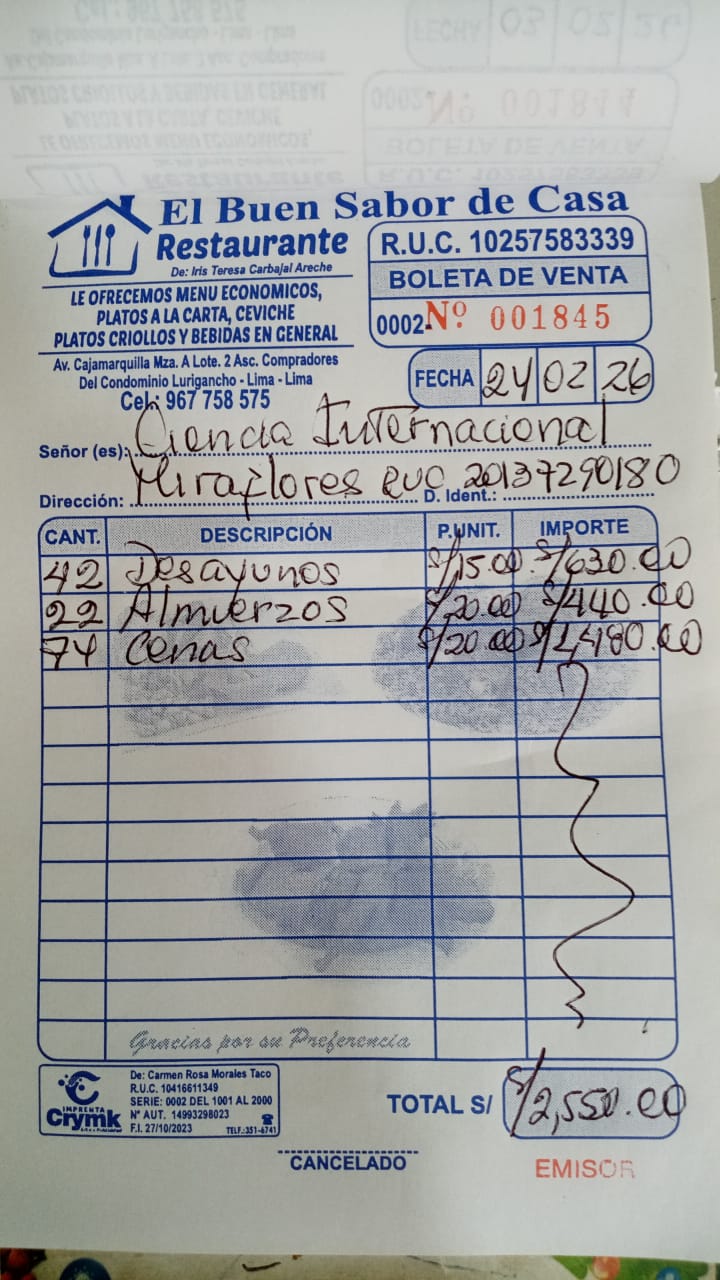 El Buen Sabor de Casa
Restaurante
De: Iris Teresa Carbajal Areche
LE OFRECEMOS MENU ECONOMICOS,
PLATOS A LA CARTA, CEVICHE
PLATOS CRIOLLOS Y BEBIDAS EN GENERAL
Av. Cajamarquilla Mza. A Lote. 2 Asc. Compradores
Del Condominio Lurigancho - Lima - Lima
Cel.: 967 758 575
R.U.C. 10257583339
BOLETA DE VENTA
0002- Nº 001845
FECHA 24 02 26
Señor (es): Ciencia Internacional
Dirección: Miraflores RUC D. Ident.: 20137290180
CANT. DESCRIPCIÓN P.UNIT. IMPORTE
42 Desayunos S/15.00 S/630.00
22 Almuerzos S/20.00 S/440.00
74 Cenas S/20.00 S/1,480.00
Gracias por su Preferencia
IMPRENTA
Crymk
De: Carmen Rosa Morales Taco
R.U.C. 10416611349
SERIE: 0002 DEL 1001 AL 2000
Nº AUT. 14993298023
F.I. 27/10/2023 TELF.: 351-6741
TOTAL S/ S/2,550.00
CANCELADO
EMISOR